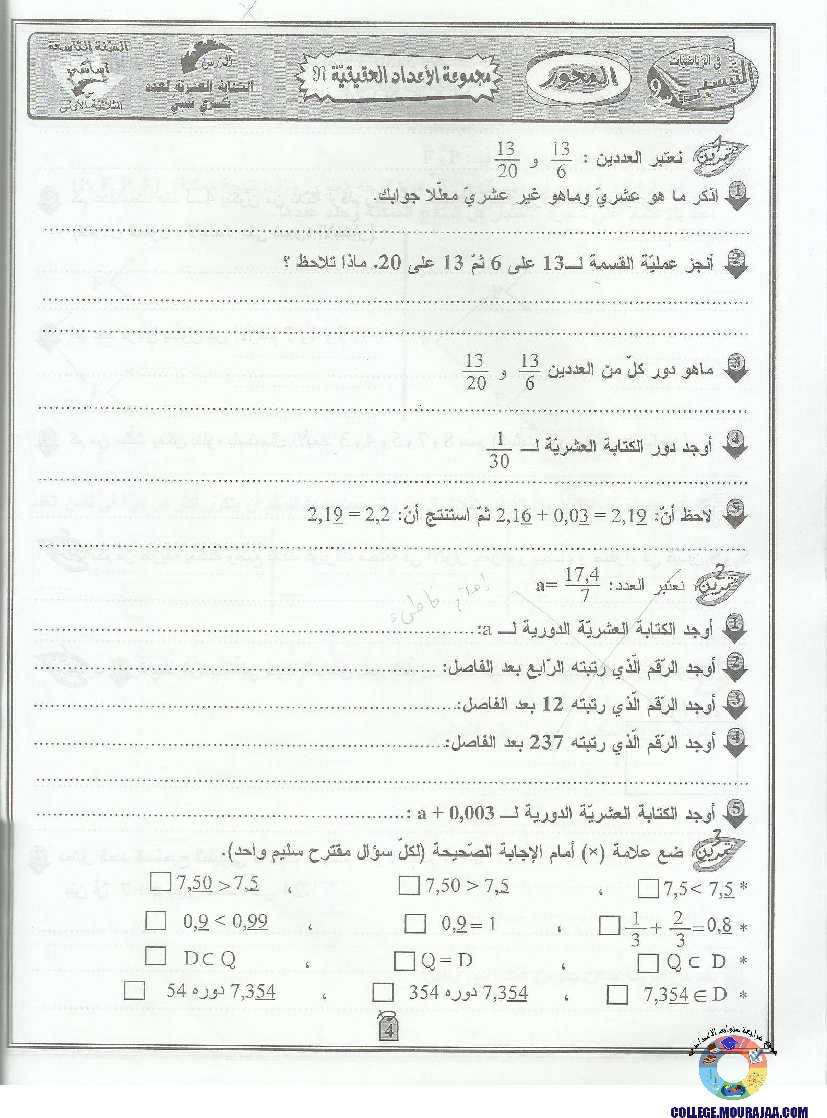 السنة التاسعة
أساسي
الثلاثية الأولى
الدرس
الكتابة العشرية لعدد
كسري نسبي
مجموعة الأعداد الحقيقية ℜ
المحور
في الرياضيات
9
تمرين 1 نعتبر العددين : 13/6 و 13/20
1 اذكر ما هو عشريّ وماهو غير عشريّ معلّلا جوابك.
2 أنجز عمليّة القسمة لــ13 على 6 ثمّ 13 على 20. ماذا تلاحظ ؟
3 ماهو دور كلّ من العددين 13/6 و 13/20
4 أوجد دور الكتابة العشريّة لــ 1/30
5 لاحظ أنّ: 2,1<u>9</u> = 0,0<u>3</u> + 2,1<u>6</u> ثمّ استنتج أنّ: 2,2 = 2,1<u>9</u>
تمرين 2 نعتبر العدد: a= 17,4/7
1 أوجد الكتابة العشريّة الدورية لــ a:
2 أوجد الرّقم الّذي رتبته الرّابع بعد الفاصل:
3 أوجد الرّقم الّذي رتبته 12 بعد الفاصل:
4 أوجد الرّقم الّذي رتبته 237 بعد الفاصل:
5 أوجد الكتابة العشريّة الدورية لــ a + 0,003 :
تمرين 2 ضع علامة (×) أمام الإجابة الصّحيحة (لكلّ سؤال مقترح سليم واحد).
* 7,5< 7,<u>5</u> ، 7,50 > 7,<u>5</u> ، 7,<u>50</u> >7,<u>5</u>
* 1/3 + 2/3 =0,<u>8</u> ، 0,<u>9</u> = 1 ، 0,<u>9</u> < 0,<u>99</u>
* Q ⊂ D ، Q = D ، D⊂ Q
* 7,3<u>54</u> ∈ D ، 7,3<u>54</u> دوره 354 ، 7,3<u>54</u> دوره 54
4
COLLEGE.MOURAJAA.COM